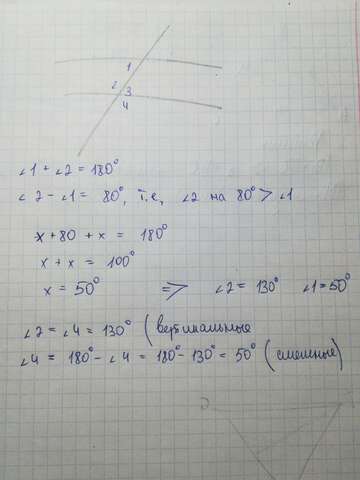 1
2
3
4
∠1 + ∠2 = 180°
∠2 - ∠1 = 80°, т.е, ∠2 на 80° > ∠1
x + 80 + x = 180°
x + x = 100°
x = 50° => ∠2 = 130° ∠1 = 50°
∠2 = ∠4 = 130° (вертикальные
∠4 = 180° - ∠4 = 180° - 130° = 50° (смежные)